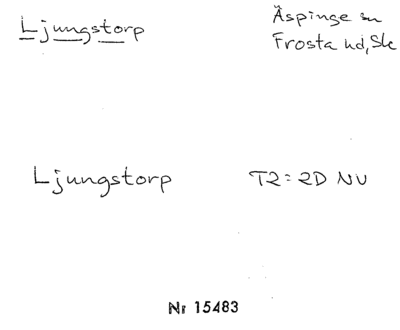 Ljungstorp
Äspinge sn
Frosta hd, Sk
Ljungstorp
T2=2D NV
Nr 15483